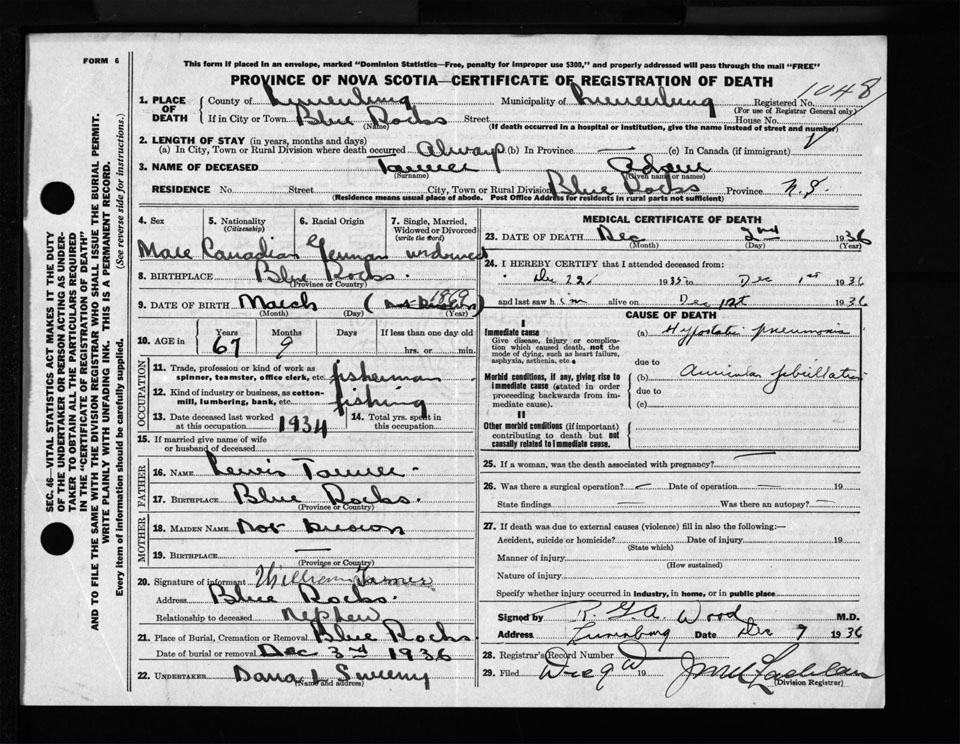 FORM 6
This form if placed in an envelope, marked "Dominion Statistics—Free, penalty for improper use $300," and properly addressed will pass through the mail "FREE"
PROVINCE OF NOVA SCOTIA—CERTIFICATE OF REGISTRATION OF DEATH
1048
1. PLACE OF DEATH
County of Lunenburg Municipality of Lunenburg Registered No.
(For use of Registrar General only)
If in City or Town Blue Rocks Street House No.
(Name) (If death occurred in a hospital or institution, give the name instead of street and number)
2. LENGTH OF STAY (in years, months and days)
(a) In City, Town or Rural Division where death occurred Always (b) In Province — (c) In Canada (if immigrant) —
3. NAME OF DECEASED Tanner Adam
(Surname) (Given name or names)
RESIDENCE No. Street City, Town or Rural Division Blue Rocks Province N.S.
(Residence means usual place of abode. Post Office Address for residents in rural parts not sufficient)
4. Sex
Male
5. Nationality
(Citizenship)
Canadian
6. Racial Origin
German
7. Single, Married, Widowed or Divorced
(write the word)
widowed
8. BIRTHPLACE Blue Rocks.
(Province or Country)
9. DATE OF BIRTH March (Not Known) 1869
(Month) (Day) (Year)
10. AGE in
Years 67
Months 9
Days
If less than one day old
hrs. or min.
OCCUPATION
11. Trade, profession or kind of work as spinner, teamster, office clerk, etc. fisherman
12. Kind of industry or business, as cotton-mill, lumbering, bank, etc. fishing
13. Date deceased last worked at this occupation 1934
14. Total yrs. spent in this occupation
15. If married give name of wife or husband of deceased
FATHER
16. NAME Lewis Tanner.
17. BIRTHPLACE Blue Rocks.
(Province or Country)
MOTHER
18. MAIDEN NAME Not Known
19. BIRTHPLACE —
(Province or Country)
20. Signature of informant William Tanner
Address Blue Rocks.
Relationship to deceased Nephew
21. Place of Burial, Cremation or Removal Blue Rocks.
Date of burial or removal Dec 3rd 1936
22. UNDERTAKER Dana L Sweeny
(Name and address)
MEDICAL CERTIFICATE OF DEATH
23. DATE OF DEATH Dec 2nd 1936
(Month) (Day) (Year)
24. I HEREBY CERTIFY that I attended deceased from:
Dec 22, 1935 to Dec 1st 1936
and last saw him alive on Dec 1st 1936
CAUSE OF DEATH
I
Immediate cause
Give disease, injury or complication which caused death, not the mode of dying, such as heart failure, asphyxia, asthenia, etc.
(a) Hypostatic pneumonia
due to
Morbid conditions, if any, giving rise to immediate cause (stated in order proceeding backwards from immediate cause).
(b) Auricular fibrillation
due to
(c)
II
Other morbid conditions (if important) contributing to death but not causally related to immediate cause.
25. If a woman, was the death associated with pregnancy? —
26. Was there a surgical operation? — Date of operation — 19
State findings — Was there an autopsy? —
27. If death was due to external causes (violence) fill in also the following:—
Accident, suicide or homicide? Date of injury 19
(State which)
Manner of injury
(How sustained)
Nature of injury
Specify whether injury occurred in industry, in home, or in public place
Signed by R. G. A. Wood M.D.
Address Lunenburg Date Dec 7 1936
28. Registrar's Record Number
29. Filed 19
(Division Registrar)
SEC. 46—VITAL STATISTICS ACT MAKES IT THE DUTY
OF THE UNDERTAKER OR PERSON ACTING AS UNDER-
TAKER TO OBTAIN ALL THE PARTICULARS REQUIRED
IN THE "CERTIFICATE OF REGISTRATION OF DEATH"
AND TO FILE THE SAME WITH THE DIVISION REGISTRAR WHO SHALL ISSUE THE BURIAL PERMIT.
WRITE PLAINLY WITH UNFADING INK. THIS IS A PERMANENT RECORD.
Every item of information should be carefully supplied. (See reverse side for instructions.)